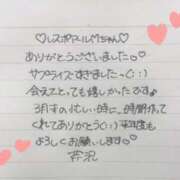 ♡レスポアールバちゃん♡
ありがとうございました♡
サプライズすぎましたっ(::)
会えてとっても嬉しかったです
3月末の忙しい時に、時間作って
くれてありがとう(::)来年度も
よろしくお願いします♡
芹沢